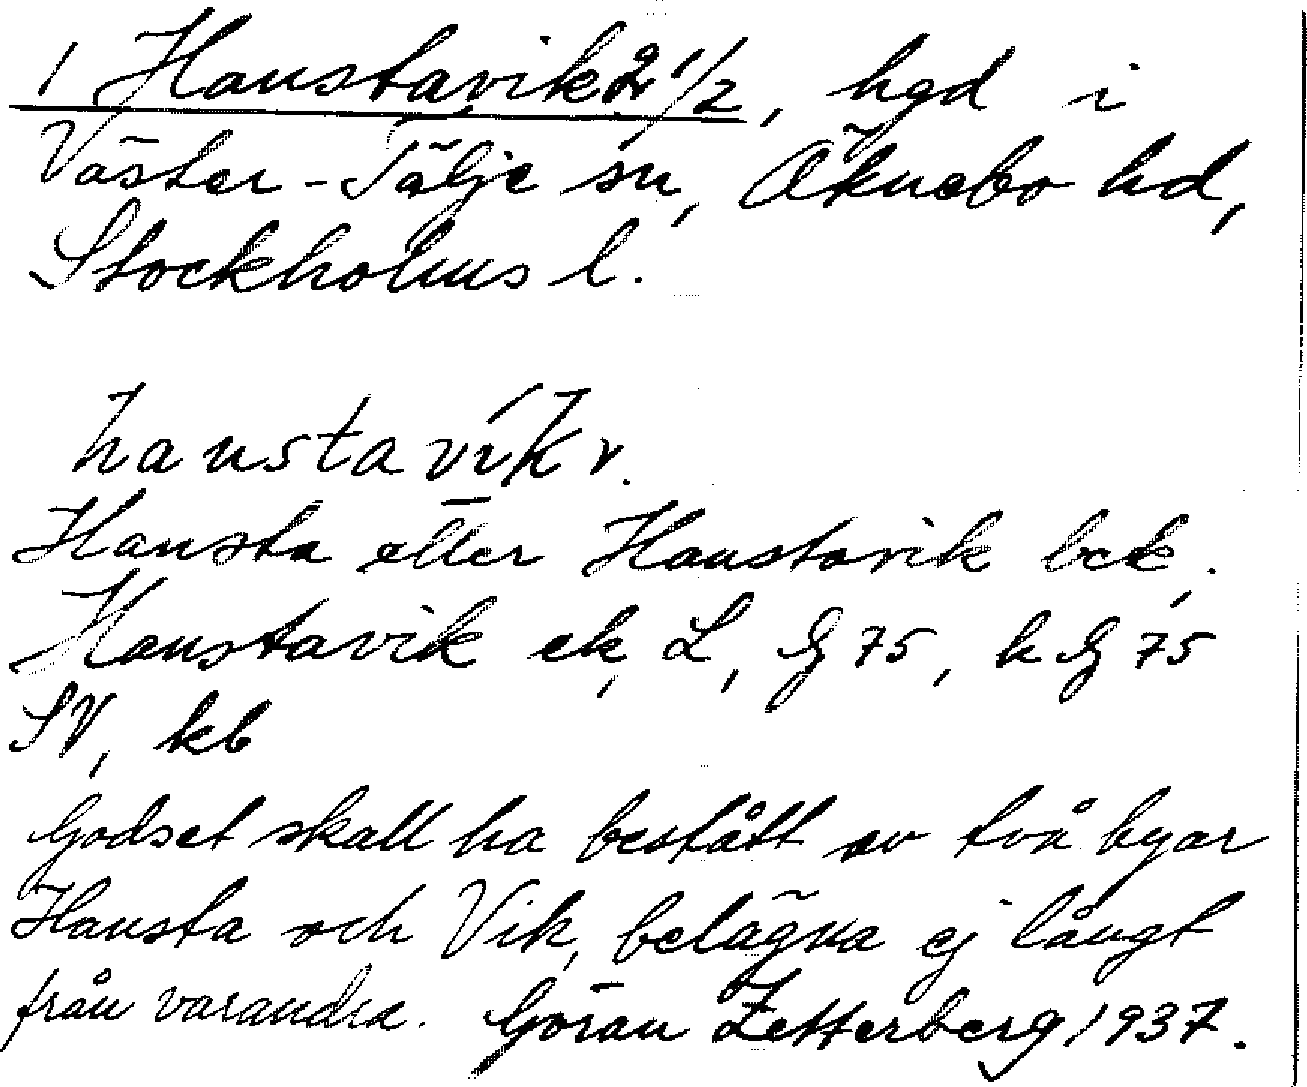 1 Hanstavik 2 1/2, hgd i
Väster-Tälje sn, Öknebo hd,
Stockholms l.
hanstavik v.
Hansta eller Hanstavik bek.
Hanstavik ek, L, G 75, h G 75
SV, kb
Godset skall ha bestått av två byar
Hansta och Vik, belägna ej långt
från varandra. Göran Zetterberg 1937.